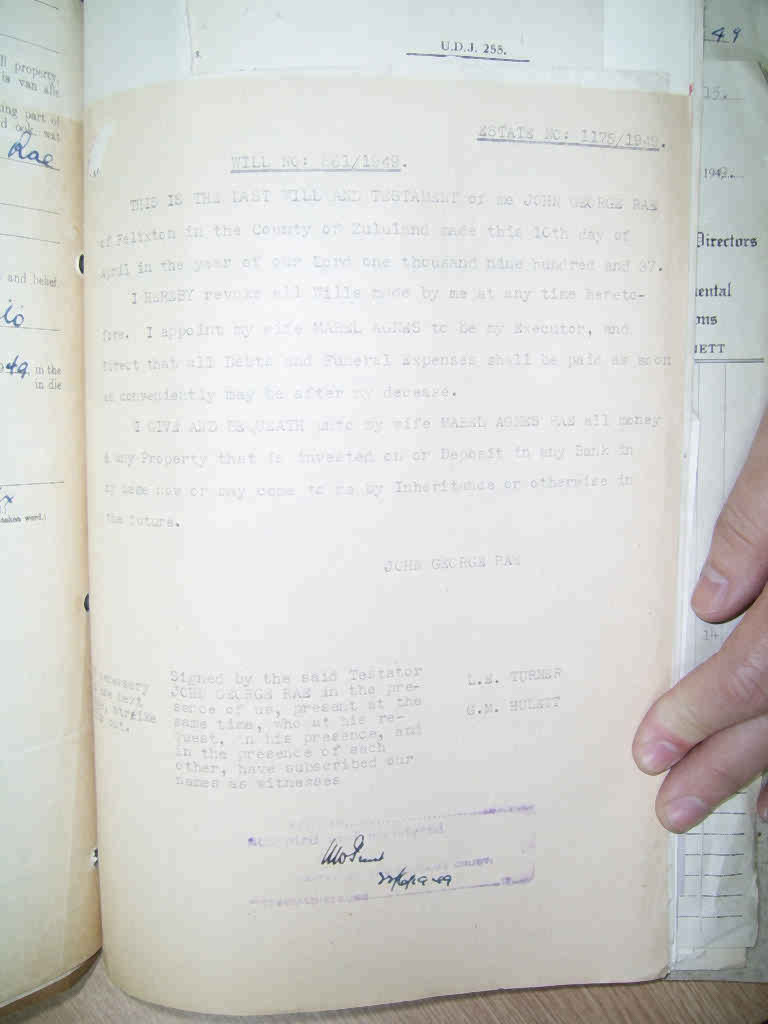 U.D.J. 255.
ESTATE NO: 1175/1949.
WILL NO: 861/1949.
THIS IS THE LAST WILL AND TESTAMENT of me JOHN GEORGE RAE
of Felixton in the County of Zululand made this 10th day of
April in the year of our Lord one thousand nine hundred and 37.
I HEREBY revoke all Wills made by me at any time hereto-
fore. I appoint my wife MABEL AGNES to be my Executor, and
direct that all Debts and Funeral Expenses shall be paid as soon
as conveniently may be after my decease.
I GIVE AND BEQUEATH unto my wife MABEL AGNES RAE all money
& any Property that is invested on or Deposit in any Bank in
my name now or may come to me by Inheritance or otherwise in
the future.
JOHN GEORGE RAE
Signed by the said Testator
JOHN GEORGE RAE in the pre-
sence of us, present at the
same time, who at his re-
quest, in his presence, and
in the presence of each
other, have subscribed our
names as witnesses
L.E. TURNER
G.M. HULETT
strike
out.
property,
is van die
ing part of
ook wat
Rae
and belief
49, in the
in die
49
15.
194
Directors
14.